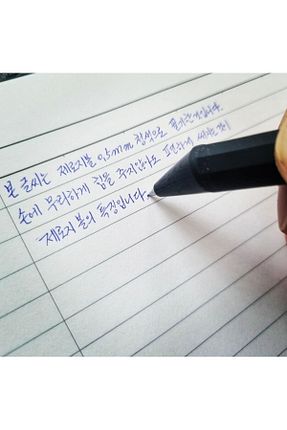 본 글씨는 제로지볼 0.5mm 청색으로 필기한것입니다.
손에 무리하게 힘을 주지않아도 편하게 써지는것이
제로지 볼의 특징입니다.